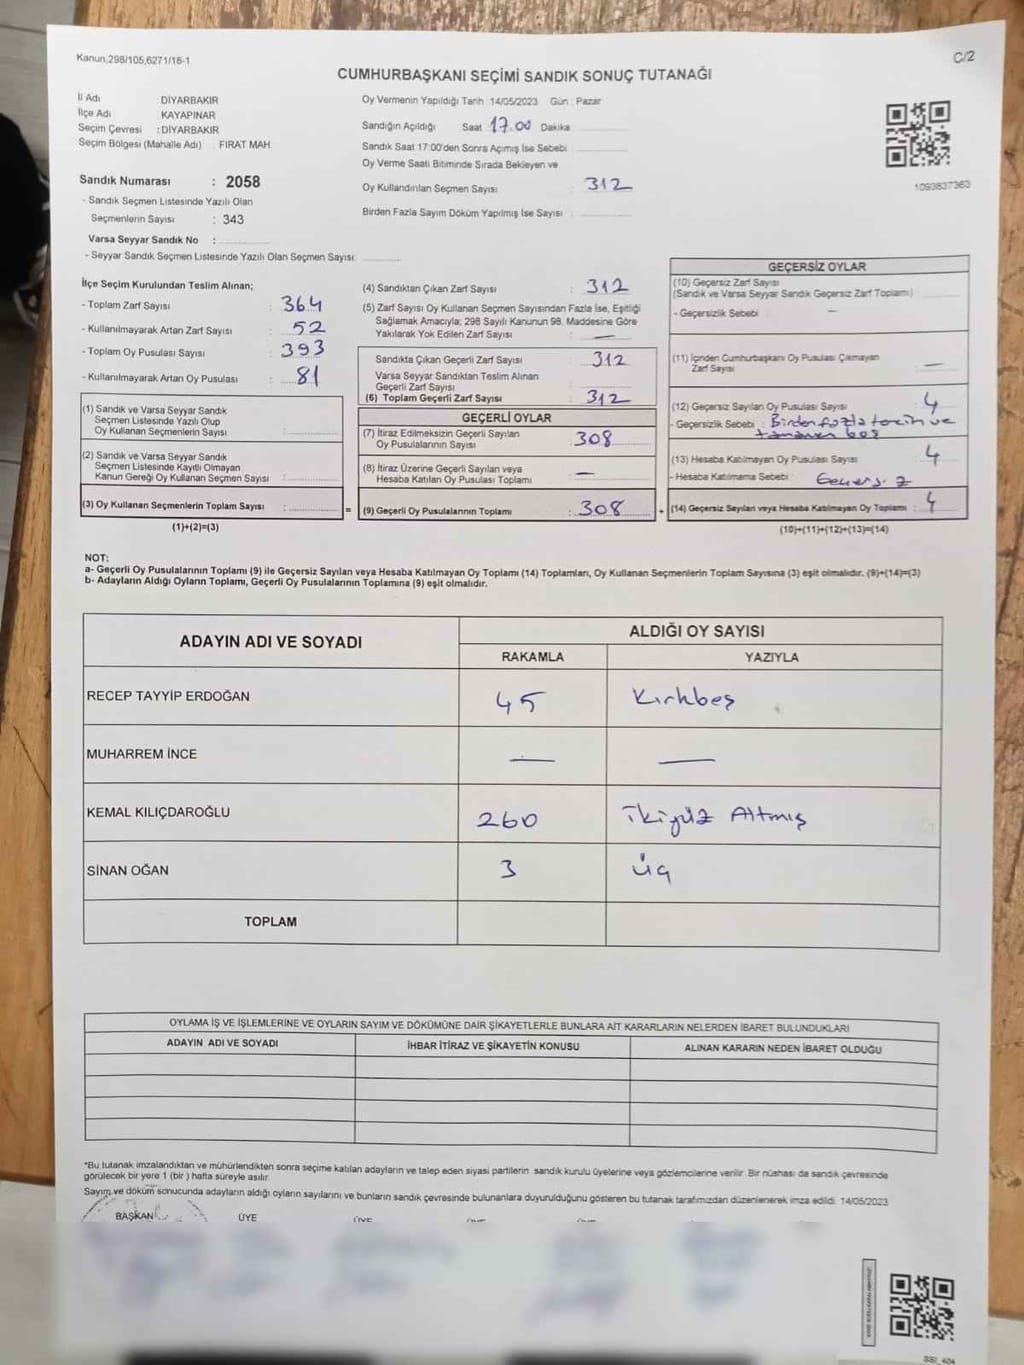 Kanun.298/105,6271/18-1
C/2
CUMHURBAŞKANI SEÇİMİ SANDIK SONUÇ TUTANAĞI
İl Adı : DİYARBAKIR
İlçe Adı : KAYAPINAR
Seçim Çevresi : DİYARBAKIR
Seçim Bölgesi (Mahalle Adı) FIRAT MAH.
Sandık Numarası : 2058
- Sandık Seçmen Listesinde Yazılı Olan
Seçmenlerin Sayısı : 343
Varsa Seyyar Sandık No :
- Seyyar Sandık Seçmen Listesinde Yazılı Olan Seçmen Sayısı:
Oy Vermenin Yapıldığı Tarih 14/05/2023 Gün : Pazar
Sandığın Açıldığı Saat 17.00 Dakika
Sandık Saat 17:00'den Sonra Açımış İse Sebebi
Oy Verme Saati Bitiminde Sırada Bekleyen ve
Oy Kullandırılan Seçmen Sayısı : 312
Birden Fazla Sayım Döküm Yapılmış İse Sayısı :
1093837363
İlçe Seçim Kurulundan Teslim Alınan;
- Toplam Zarf Sayısı : 364
- Kullanılmayarak Artan Zarf Sayısı : 52
- Toplam Oy Pusulası Sayısı : 393
- Kullanılmayarak Artan Oy Pusulası : 81
(1) Sandık ve Varsa Seyyar Sandık
Seçmen Listesinde Yazılı Olup
Oy Kullanan Seçmenlerin Sayısı :
(2) Sandık ve Varsa Seyyar Sandık
Seçmen Listesinde Kayıtlı Olmayan
Kanun Gereği Oy Kullanan Seçmen Sayısı :
(3) Oy Kullanan Seçmenlerin Toplam Sayısı :
(1)+(2)=(3)
(4) Sandıktan Çıkan Zarf Sayısı : 312
(5) Zarf Sayısı Oy Kullanan Seçmen Sayısından Fazla İse, Eşitliği
Sağlamak Amacıyla; 298 Sayılı Kanunun 98. Maddesine Göre
Yakılarak Yok Edilen Zarf Sayısı : —
Sandıkta Çıkan Geçerli Zarf Sayısı : 312
Varsa Seyyar Sandıktan Teslim Alınan
Geçerli Zarf Sayısı :
(6) Toplam Geçerli Zarf Sayısı : 312
GEÇERLİ OYLAR
(7) İtiraz Edilmeksizin Geçerli Sayılan
Oy Pusulalarının Sayısı : 308
(8) İtiraz Üzerine Geçerli Sayılan veya
Hesaba Katılan Oy Pusulası Toplamı : —
= (9) Geçerli Oy Pusulalarının Toplamı : 308 +
GEÇERSİZ OYLAR
(10) Geçersiz Zarf Sayısı
(Sandık ve Varsa Seyyar Sandık Geçersiz Zarf Toplamı) :
- Geçersizlik Sebebi : —
(11) İçinden Cumhurbaşkanı Oy Pusulası Çıkmayan
Zarf Sayısı : —
(12) Geçersiz Sayılan Oy Pusulası Sayısı : 4
- Geçersizlik Sebebi : Birden fazla tercih ve
tamamen boş
(13) Hesaba Katılmayan Oy Pusulası Sayısı : 4
- Hesaba Katılmama Sebebi : Geçersiz
(14) Geçersiz Sayılan veya Hesaba Katılmayan Oy Toplamı : 4
(10)+(11)+(12)+(13)=(14)
NOT:
a- Geçerli Oy Pusulalarının Toplamı (9) ile Geçersiz Sayılan veya Hesaba Katılmayan Oy Toplamı (14) Toplamları, Oy Kullanan Seçmenlerin Toplam Sayısına (3) eşit olmalıdır. (9)+(14)=(3)
b- Adayların Aldığı Oyların Toplamı, Geçerli Oy Pusulalarının Toplamına (9) eşit olmalıdır.
ADAYIN ADI VE SOYADI
ALDIĞI OY SAYISI
RAKAMLA YAZIYLA
RECEP TAYYİP ERDOĞAN 45 Kırkbeş
MUHARREM İNCE — —
KEMAL KILIÇDAROĞLU 260 ikiyüz Altmış
SİNAN OĞAN 3 üç
TOPLAM
OYLAMA İŞ VE İŞLEMLERİNE VE OYLARIN SAYIM VE DÖKÜMÜNE DAİR ŞİKAYETLERLE BUNLARA AİT KARARLARIN NELERDEN İBARET BULUNDUKLARI
ADAYIN ADI VE SOYADI İHBAR İTİRAZ VE ŞİKAYETİN KONUSU ALINAN KARARIN NEDEN İBARET OLDUĞU
*Bu tutanak imzalandıktan ve mühürlendikten sonra seçime katılan adayların ve talep eden siyasi partilerin sandık kurulu üyelerine veya gözlemcilerine verilir. Bir nüshası da sandık çevresinde
görülecek bir yere 1 (bir) hafta süreyle asılır.
Sayım ve döküm sonucunda adayların aldığı oyların sayılarını ve bunların sandık çevresinde bulunanlara duyurulduğunu gösteren bu tutanak tarafımızdan düzenlenerek imza edildi. 14/05/2023
BAŞKAN ÜYE ÜYE ÜYE ÜYE